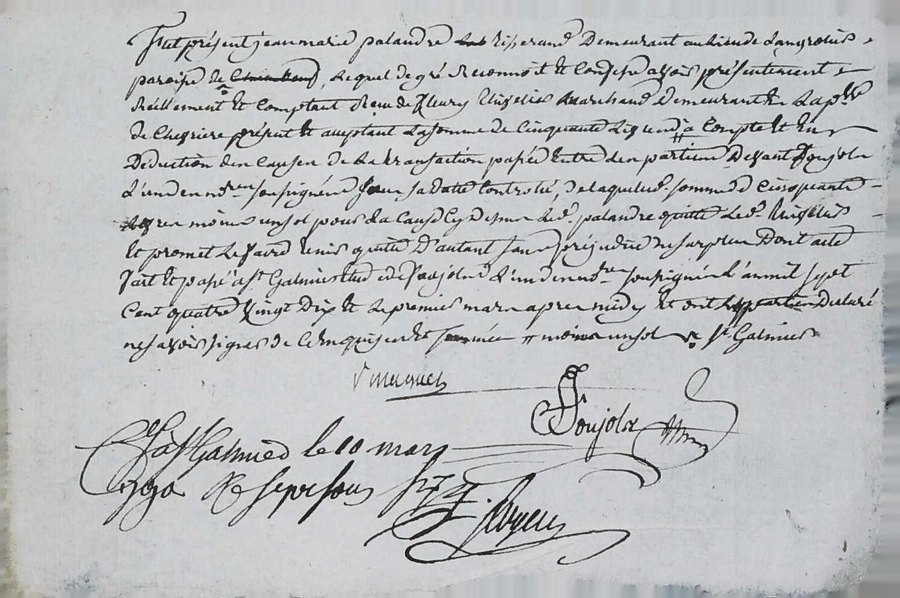 Fut présent jean marie palandre tisserand Demeurant au lieu de
paroisse de lequel de gré Reconnoit et Confesse avoir présentement
Réellement et Comptant Reçu de fleury marchand Demeurant en la psse
de Chevrière présent et acceptant La somme de Cinquante Livres # à Compte et En
Déduction des Causes de La transaction passée Entre les parties Devant Poujolx
L'un des nres soussignés sa datte Controllé, De laquelle somme de Cinquante
Livres moins un sol pour La Cause Cy Dessus Led. palandre quitte Led.
Et promet Le faire tenir quitte D'autant sans préjudice Du surplus Dont acte
fait et passé a St Galmier Etude de Poujolx L'un des nres soussignés L'an mil sept
Cent quatre Vingt Dix et Le premier mars après midy Et ont Les parties Déclaré
ne savoir signer de Ce Enquises et # moins un sol St Galmier
Poujolx
à St Galmier le 10 mars
1790 Rç sept sous